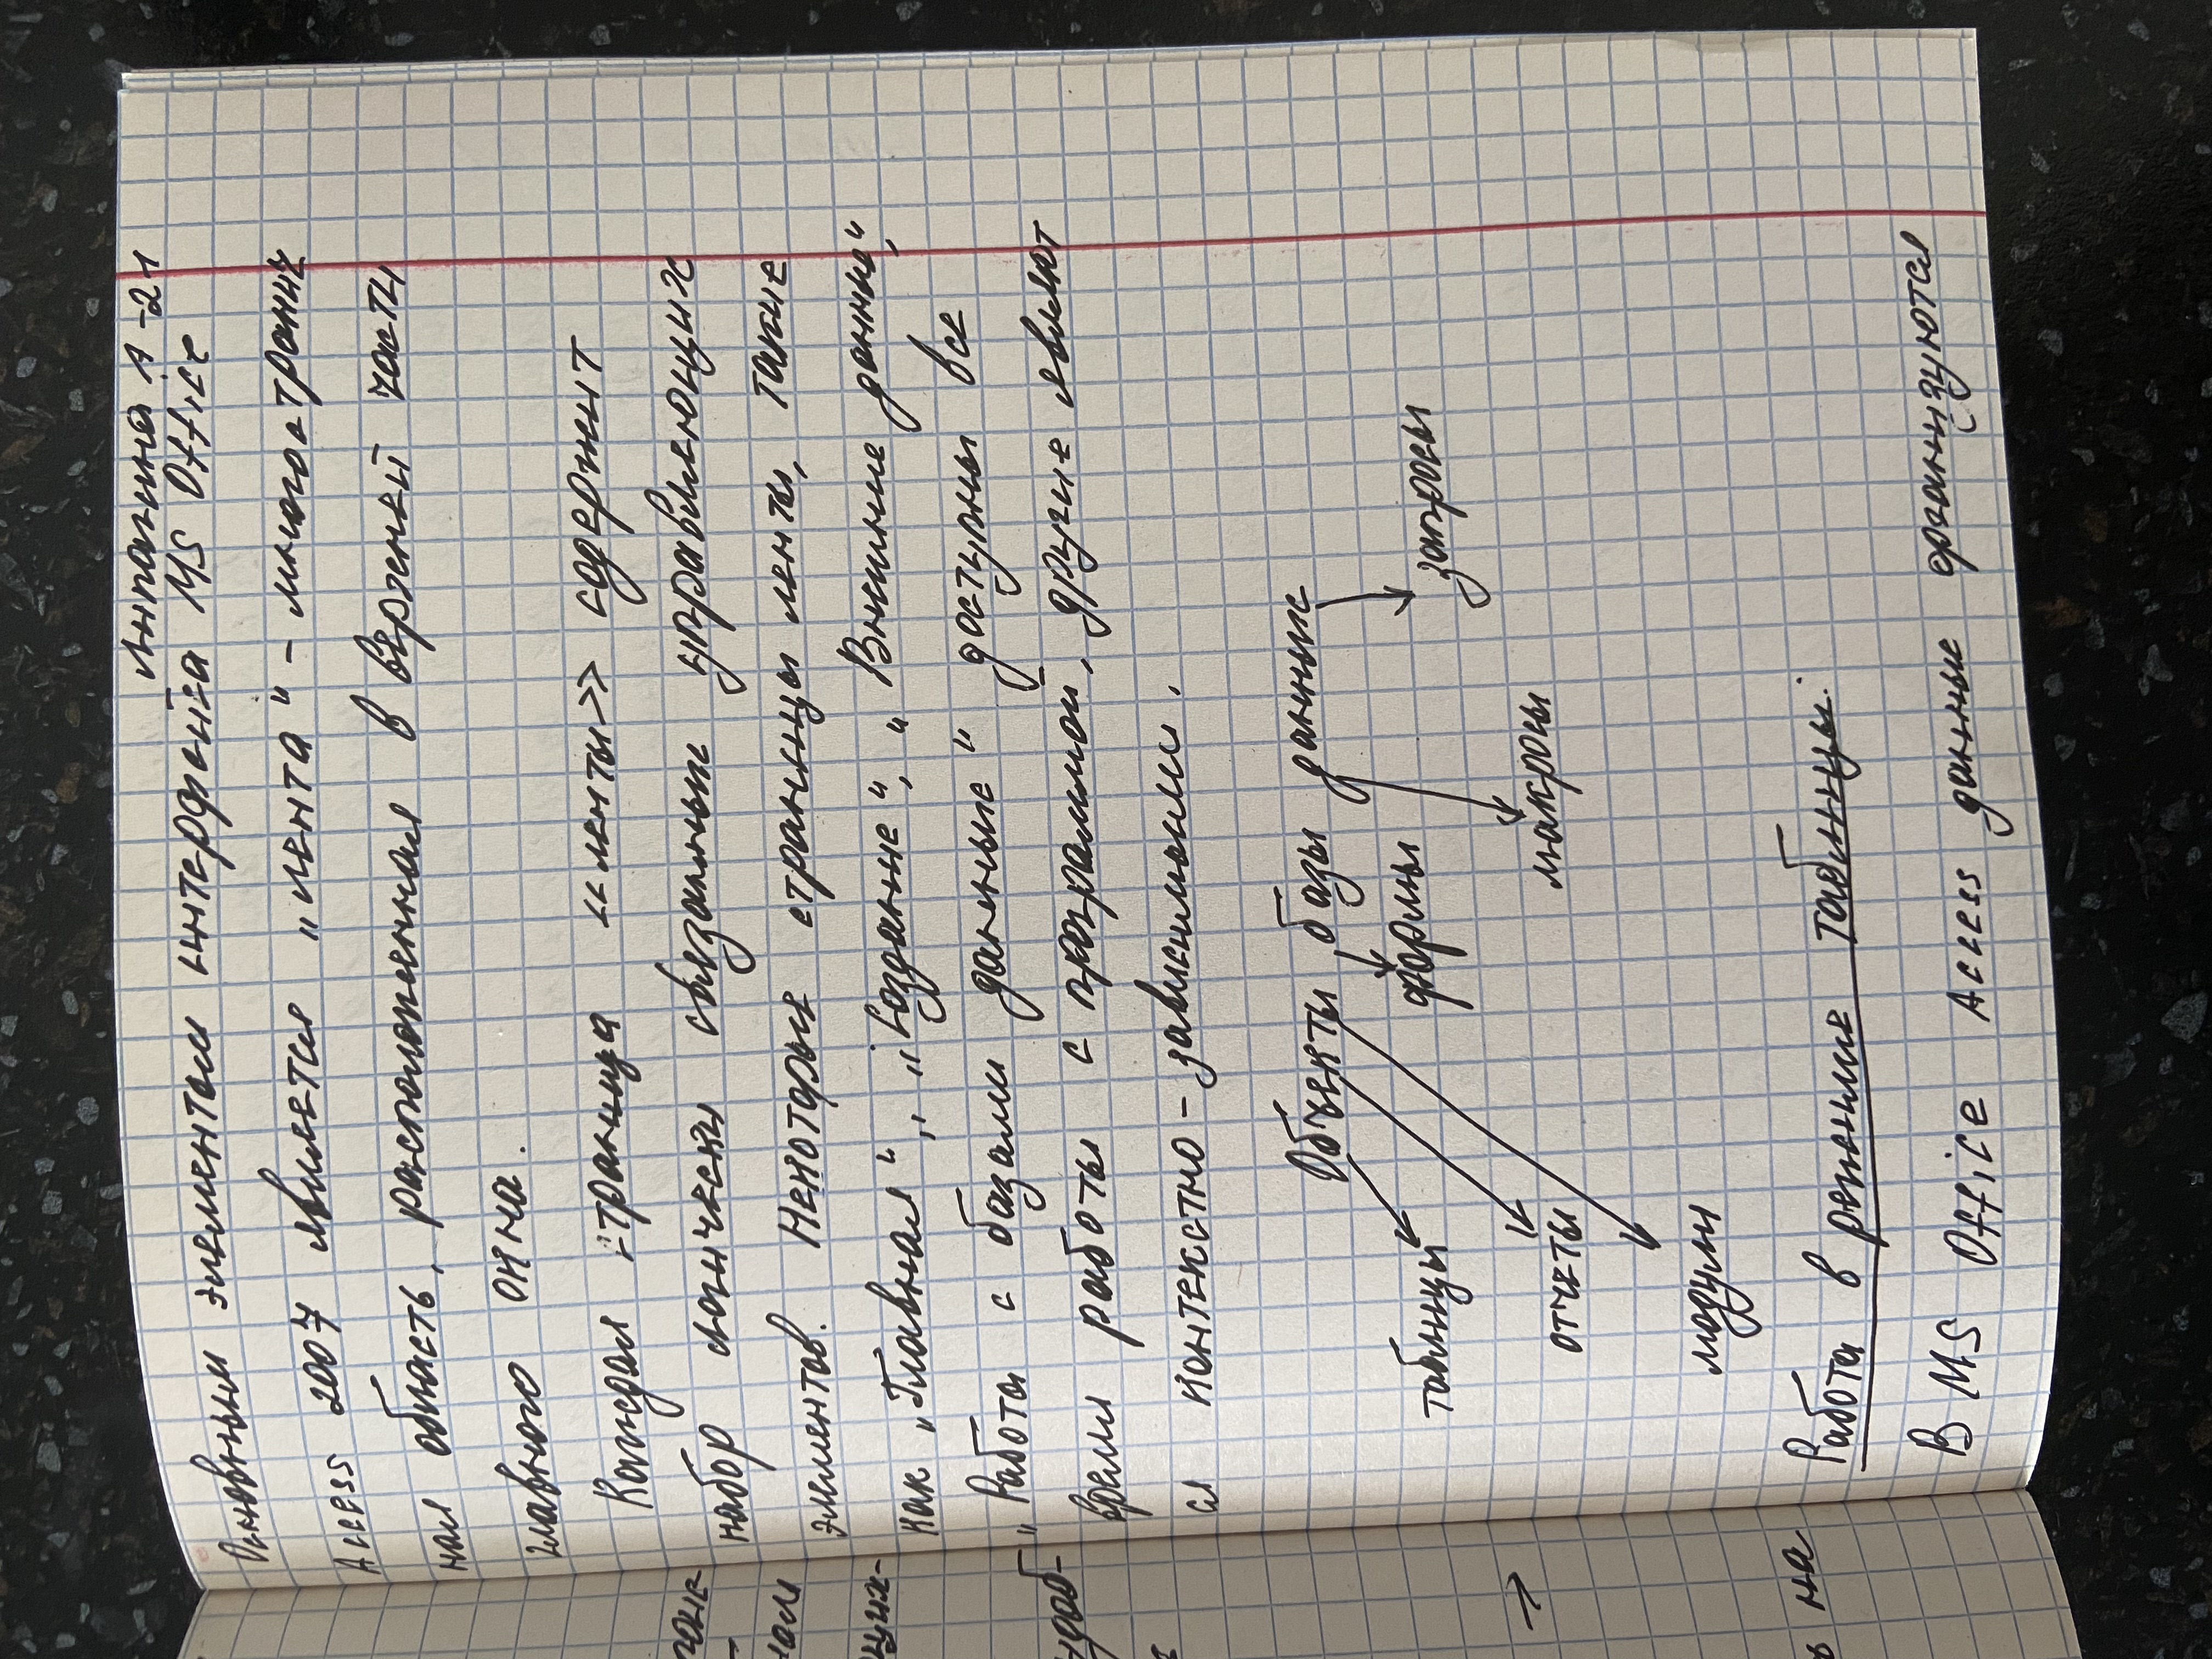 А-21
Основным элементом интерфейса MS Office
Access 2007 является "лента" - многостранич
ная область, расположенная в верхней части
главного окна.
Каждая страница <<ленты>> содержит
набор логически связанных управляющих
элементов. Некоторые страницы ленты, такие
как "Главная", "Создание", "Внешние данные",
"Работа с базами данных" доступны все
время работы с программой, другие являют
ся контекстно-зависимыми.
Объекты базы данных
таблицы формы запросы
отчеты макросы
модули
Работа в режиме таблицы.
В MS Office Access данные организуются
удоб-
на